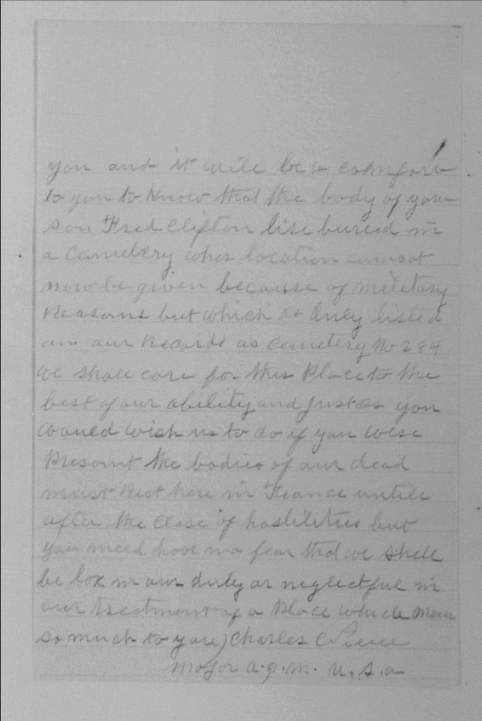 you and it will be a comfort
to you to know that the body of your
son Fred Clifton lise buried in
a Cemetery whos location cannot
now be given because of military
Reasons but which is duly listed
on our Records as Cemetery No 284
we shall care for this Place to the
best of our ability and just as you
would wish us to do if you were
Present the bodies of our dead
must Rest here in France untill
after the close of hostilities but
you need have no fear that we shall
be lox in our duty or neglectful in
our treatment of a Place which mean
so much to you) Charles C Pierce
Major a.g.m. U.S.a